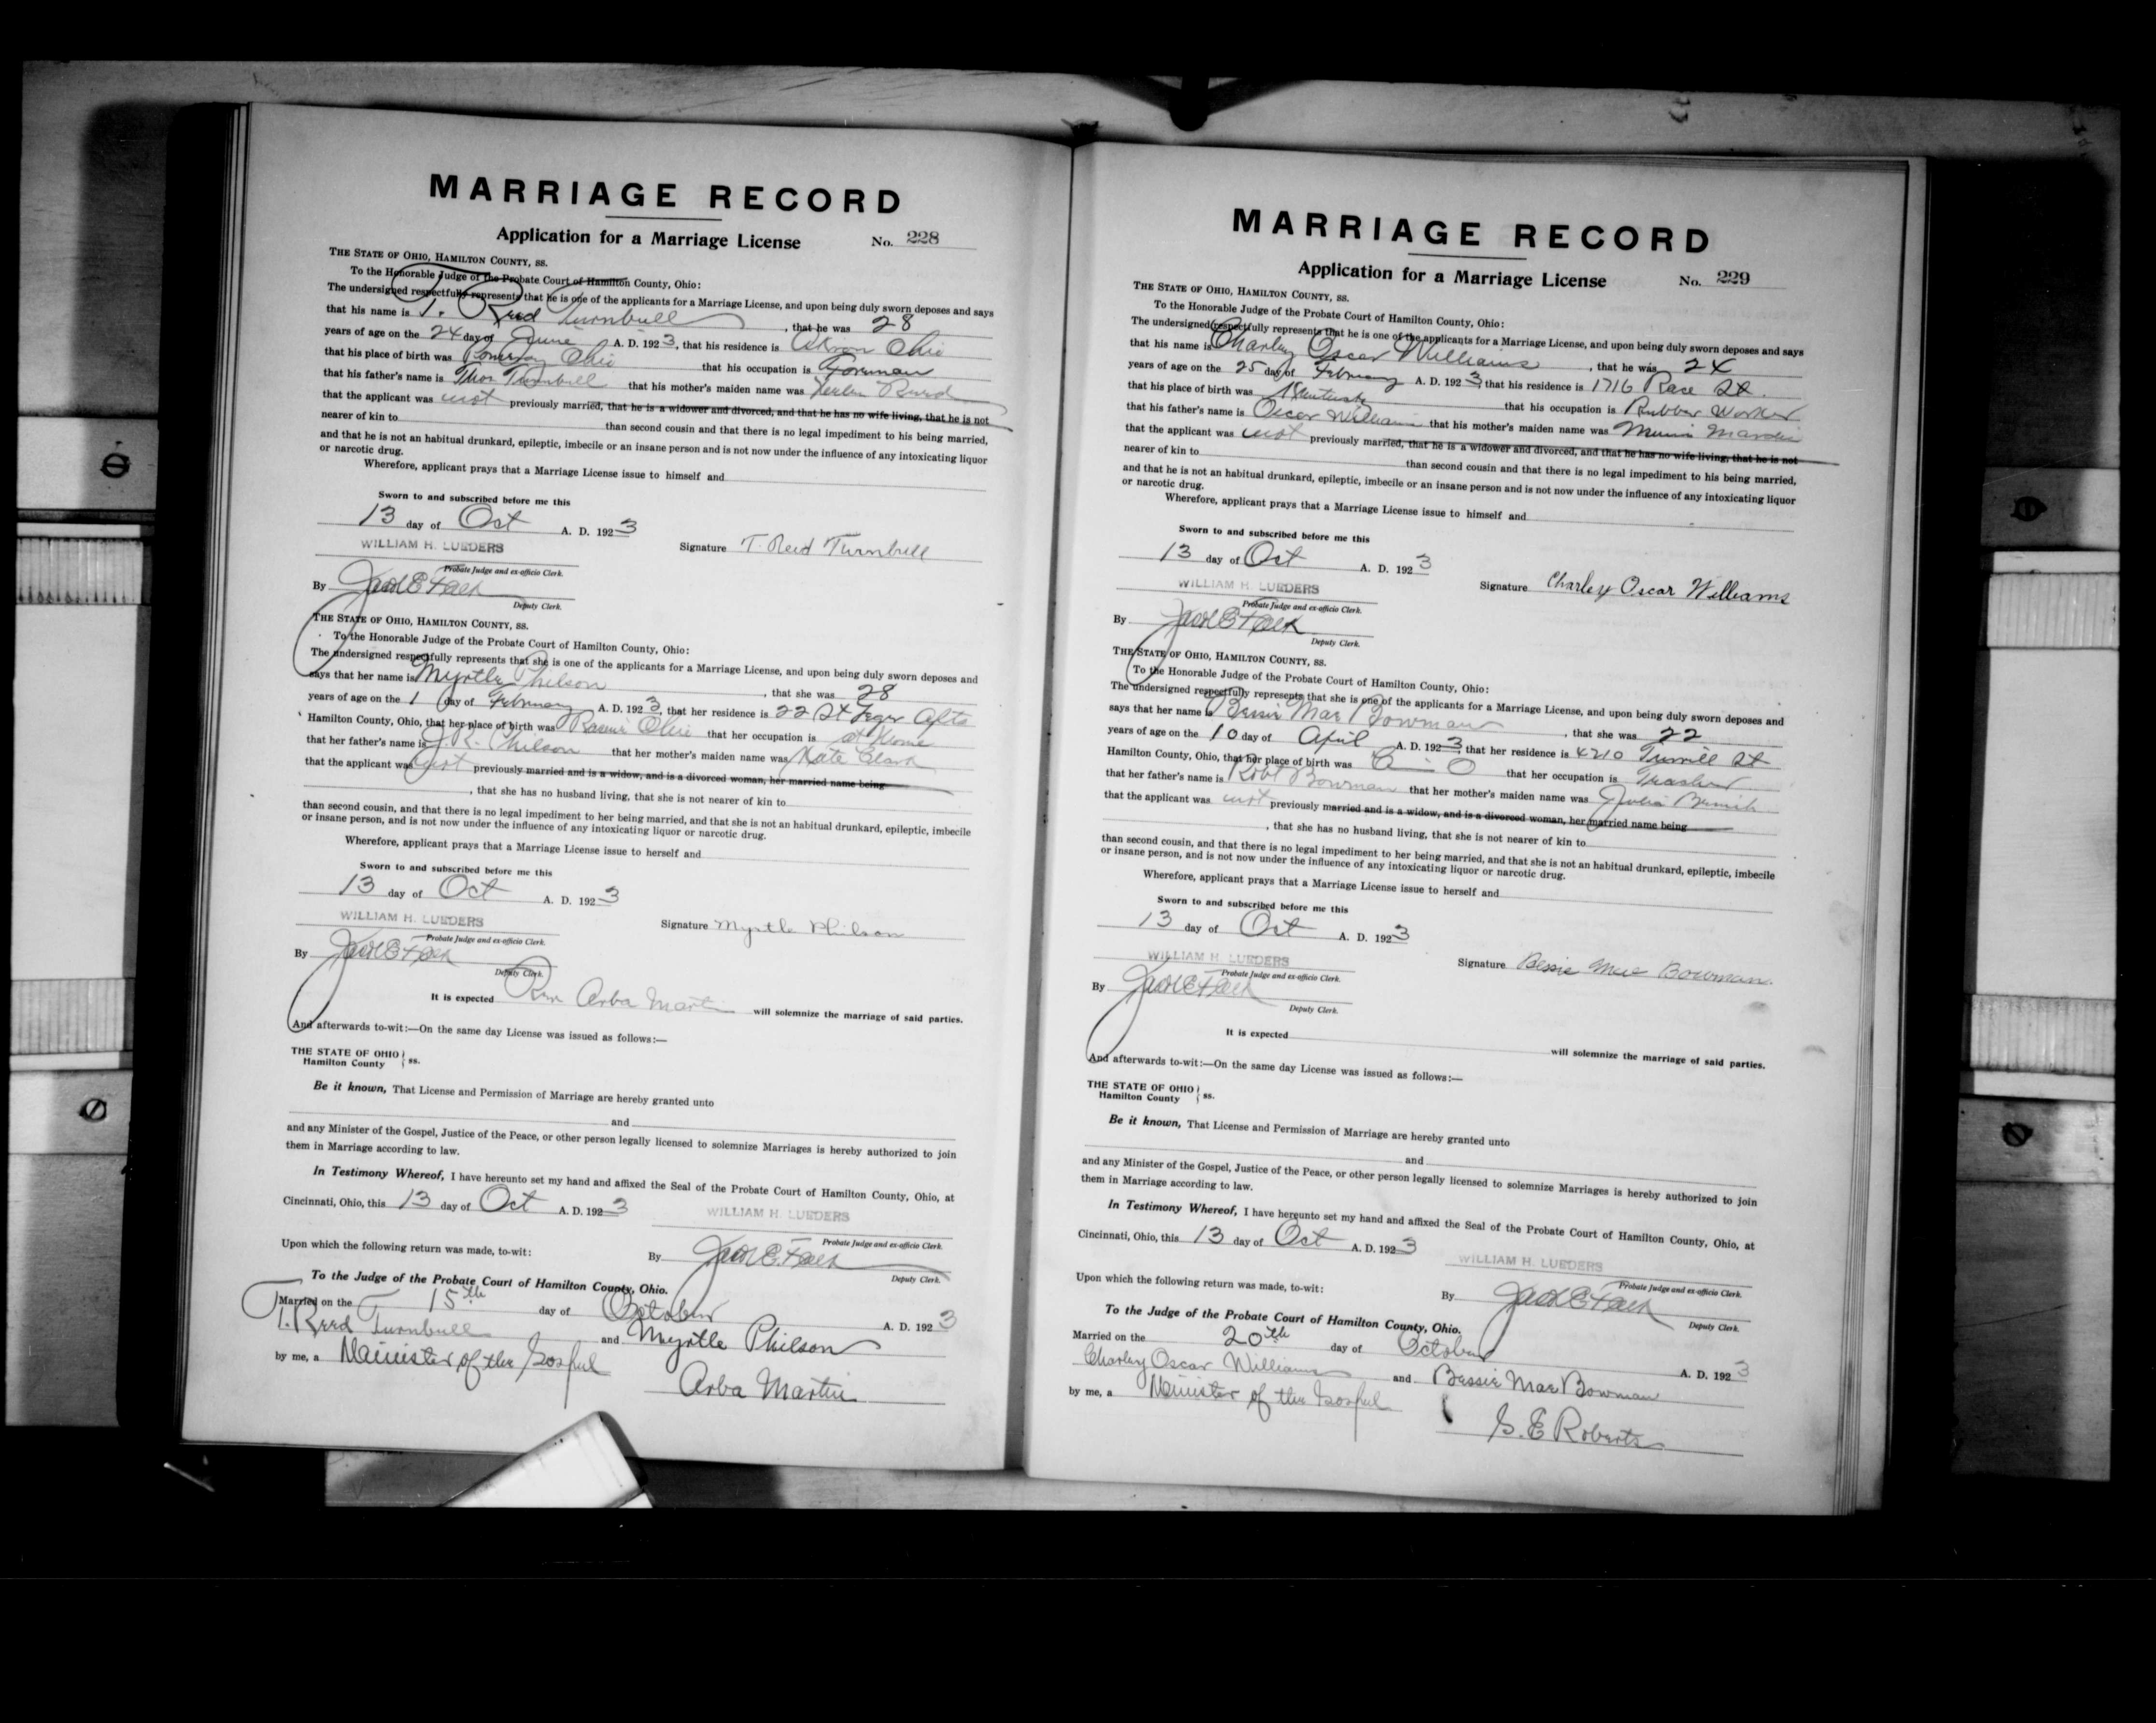 MARRIAGE RECORD
Application for a Marriage License No. 228
THE STATE OF OHIO, HAMILTON COUNTY, ss.
To the Honorable Judge of the Probate Court of Hamilton County, Ohio:
The undersigned respectfully represents that he is one of the applicants for a Marriage License, and upon being duly sworn deposes and says
that his name is T. Reed Turnbull, that he was 28
years of age on the 24 day of June A. D. 1923, that his residence is Akron Ohio
that his place of birth was Pomeroy Ohio that his occupation is Foreman
that his father's name is Thos Turnbull that his mother's maiden name was
that the applicant was not previously married, that he is a widower and divorced, and that he has no wife living, that he is not
nearer of kin to than second cousin and that there is no legal impediment to his being married,
and that he is not an habitual drunkard, epileptic, imbecile or an insane person and is not now under the influence of any intoxicating liquor
or narcotic drug.
Wherefore, applicant prays that a Marriage License issue to himself and
Sworn to and subscribed before me this
13 day of Oct A. D. 1923
WILLIAM H. LUEDERS Signature T. Reed Turnbull
Probate Judge and ex-officio Clerk.
By
Deputy Clerk.
THE STATE OF OHIO, HAMILTON COUNTY, ss.
To the Honorable Judge of the Probate Court of Hamilton County, Ohio:
The undersigned respectfully represents that she is one of the applicants for a Marriage License, and upon being duly sworn deposes and
says that her name is Myrtle Philson, that she was 28
years of age on the 1 day of February A. D. 1923, that her residence is 22 St Leger Apts
Hamilton County, Ohio, that her place of birth was Racine Ohio that her occupation is at Home
that her father's name is J. R. Philson that her mother's maiden name was Kate Clark
that the applicant was not previously married and is a widow, and is a divorced woman, her married name being
, that she has no husband living, that she is not nearer of kin to
than second cousin, and that there is no legal impediment to her being married, and that she is not an habitual drunkard, epileptic, imbecile
or insane person, and is not now under the influence of any intoxicating liquor or narcotic drug.
Wherefore, applicant prays that a Marriage License issue to herself and
Sworn to and subscribed before me this
13 day of Oct A. D. 1923
WILLIAM H. LUEDERS Signature Myrtle Philson
Probate Judge and ex-officio Clerk.
By
Deputy Clerk.
It is expected Rev Arba Martin will solemnize the marriage of said parties.
And afterwards to-wit:—On the same day License was issued as follows:—
THE STATE OF OHIO
Hamilton County } ss.
Be it known, That License and Permission of Marriage are hereby granted unto
and
and any Minister of the Gospel, Justice of the Peace, or other person legally licensed to solemnize Marriages is hereby authorized to join
them in Marriage according to law.
In Testimony Whereof, I have hereunto set my hand and affixed the Seal of the Probate Court of Hamilton County, Ohio, at
Cincinnati, Ohio, this 13 day of Oct A. D. 1923
WILLIAM H. LUEDERS
Probate Judge and ex-officio Clerk.
Upon which the following return was made, to-wit: By
Deputy Clerk.
To the Judge of the Probate Court of Hamilton County, Ohio.
Married on the 15th day of October A. D. 1923
T. Reed Turnbull and Myrtle Philson
by me, a Minister of the Gospel
Arba Martin
MARRIAGE RECORD
Application for a Marriage License No. 229
THE STATE OF OHIO, HAMILTON COUNTY, ss.
To the Honorable Judge of the Probate Court of Hamilton County, Ohio:
The undersigned respectfully represents that he is one of the applicants for a Marriage License, and upon being duly sworn deposes and says
that his name is Charley Oscar Williams, that he was 24
years of age on the 25 day of February A. D. 1923, that his residence is 1716 Race St.
that his place of birth was Kentucky that his occupation is Rubber Worker
that his father's name is Oscar Williams that his mother's maiden name was
that the applicant was not previously married, that he is a widower and divorced, and that he has no wife living, that he is not
nearer of kin to than second cousin and that there is no legal impediment to his being married,
and that he is not an habitual drunkard, epileptic, imbecile or an insane person and is not now under the influence of any intoxicating liquor
or narcotic drug.
Wherefore, applicant prays that a Marriage License issue to himself and
Sworn to and subscribed before me this
13 day of Oct A. D. 1923
WILLIAM H. LUEDERS Signature Charley Oscar Williams
Probate Judge and ex-officio Clerk.
By
Deputy Clerk.
THE STATE OF OHIO, HAMILTON COUNTY, ss.
To the Honorable Judge of the Probate Court of Hamilton County, Ohio:
The undersigned respectfully represents that she is one of the applicants for a Marriage License, and upon being duly sworn deposes and
says that her name is Bessie Mae Bowman, that she was 22
years of age on the 10 day of April A. D. 1923, that her residence is 4210 Turrill St
Hamilton County, Ohio, that her place of birth was C - O that her occupation is Teacher
that her father's name is Robt Bowman that her mother's maiden name was Julia
that the applicant was not previously married and is a widow, and is a divorced woman, her married name being
, that she has no husband living, that she is not nearer of kin to
than second cousin, and that there is no legal impediment to her being married, and that she is not an habitual drunkard, epileptic, imbecile
or insane person, and is not now under the influence of any intoxicating liquor or narcotic drug.
Wherefore, applicant prays that a Marriage License issue to herself and
Sworn to and subscribed before me this
13 day of Oct A. D. 1923
WILLIAM H. LUEDERS Signature Bessie Mae Bowman.
Probate Judge and ex-officio Clerk.
By
Deputy Clerk.
It is expected will solemnize the marriage of said parties.
And afterwards to-wit:—On the same day License was issued as follows:—
THE STATE OF OHIO
Hamilton County } ss.
Be it known, That License and Permission of Marriage are hereby granted unto
and
and any Minister of the Gospel, Justice of the Peace, or other person legally licensed to solemnize Marriages is hereby authorized to join
them in Marriage according to law.
In Testimony Whereof, I have hereunto set my hand and affixed the Seal of the Probate Court of Hamilton County, Ohio, at
Cincinnati, Ohio, this 13 day of Oct A. D. 1923
WILLIAM H. LUEDERS
Probate Judge and ex-officio Clerk.
Upon which the following return was made, to-wit: By
Deputy Clerk.
To the Judge of the Probate Court of Hamilton County, Ohio.
Married on the 20th day of October A. D. 1923
Charley Oscar Williams and Bessie Mae Bowman
by me, a Minister of the Gospel
S. E. Roberts